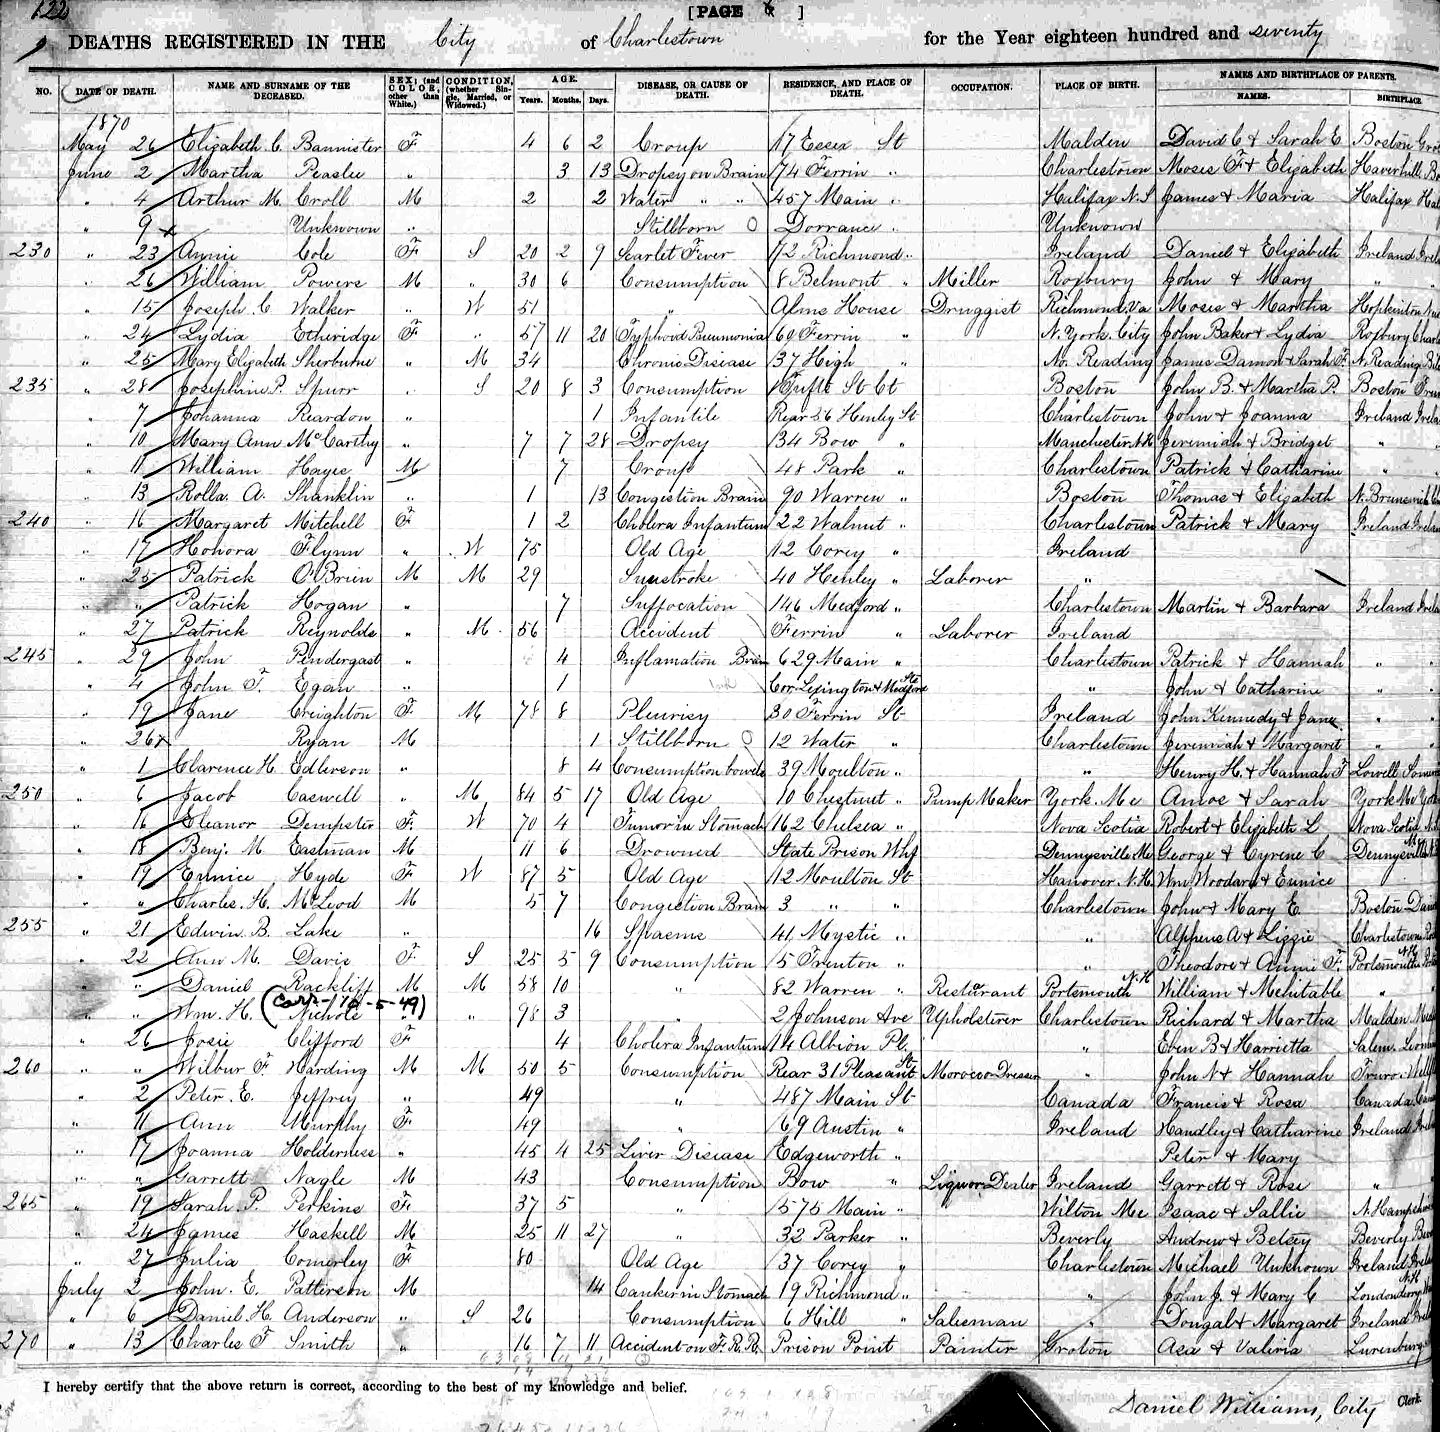 122 [PAGE ]
DEATHS REGISTERED IN THE City of Charlestown for the Year eighteen hundred and seventy
NO. DATE OF DEATH. NAME AND SURNAME OF THE DECEASED. SEX; (and COLOR, other than White.) CONDITION, (whether Single, Married, or Widowed.) AGE. Years. Months. Days. DISEASE, OR CAUSE OF DEATH. RESIDENCE, AND PLACE OF DEATH. OCCUPATION. PLACE OF BIRTH. NAMES AND BIRTHPLACE OF PARENTS. NAMES. BIRTHPLACE
1870
May 26 Elizabeth C. Bannister F 4 6 2 Croup 17 Essex St Malden David C & Sarah E Boston
June 2 Martha Peaslee " 3 13 Dropsy on Brain 74 Ferrin " Charlestown Moses F & Elizabeth Haverhill
" 4 Arthur M. Croll M 2 2 Water " " 457 Main " Halifax N.S James & Maria Halifax
" 9 x Unknown " Stillborn O Dorrance " Unknown
230 " 23 Annie Cole F S 20 2 9 Scarlet Fever 72 Richmond " Ireland Daniel & Elizabeth Ireland
" 26 William Powers M " 30 6 Consumption 8 Belmont " Miller Roxbury John & Mary " "
" 15 Joseph C Walker " W 51 " Alms House Druggist Richmond, Va Moses & Martha Hopkinton
" 24 Lydia Etheridge F " 57 11 20 Typhoid Pneumonia 60 Ferrin " N. York. City John Baker & Lydia Roxbury
" 25 Mary Elizabeth Sherburne " M 34 Chronic Disease 37 High " No. Reading James Damon & Sarah F. N. Reading
235 " 28 Josephine P. Spurr " S 20 8 3 Consumption 1 Tufts St Ct Boston John B. & Martha P. Boston
" 7 Johanna Reardon " 1 Infantile Rear 56 Henley St Charlestown John & Joanna Ireland
" 10 Mary Ann McCarthy " 7 7 28 Dropsy 34 Bow " Manchester N.H Jeremiah & Bridget " "
" 11 William Hayes M 7 Croup 48 Park " Charlestown Patrick & Catharine " "
" 13 Rolla. A. Shanklin " 1 13 Congestion Brain 90 Warren " Boston Thomas & Elizabeth N. Brunswick
240 " 16 Margaret Mitchell F 1 2 Cholera Infantum 22 Walnut " Charlestown Patrick & Mary Ireland
" 17 Honora Flynn " W 75 Old Age 12 Corey " Ireland
" 25 Patrick O'Brien M M 29 Sunstroke 40 Henley " Laborer "
" " Patrick Hogan " 7 Suffocation 146 Medford " Charlestown Martin & Barbara Ireland
" 27 Patrick Reynolds " M. 56 Accident Ferrin " Laborer Ireland
245 " 29 John Pendergast " 4 Inflamation Brain 629 Main " Charlestown Patrick & Hannah " "
" 4 John F. Egan " 1 Cor. Lexington & Medford Sts " John & Catharine " "
" 19 Jane Creighton F M 78 8 Pleurisy 30 Ferrin St Ireland John Kennedy & Jane " "
" 26 x Ryan M 1 Stillborn O 12 Water " Charlestown Jeremiah & Margaret " "
" 1 Clarence H. Edlerson " 8 4 Consumption bowels 39 Moulton " " Henry H. & Hannah F Lowell
250 " 6 Jacob Caswell " M 84 5 17 Old Age 10 Chestnut " Pump Maker York. Me Amos & Sarah York Me
" 16 Eleanor Dempster F. W 70 4 Tumor in Stomach 162 Chelsea " Nova Scotia Robert & Elizabeth L Nova Scotia
" 18 Benj. M Eastman M 11 6 Drowned State Prison Whf Dennysville Me George & Cyrene C Dennysville
" 19 Eunice Hyde F W 87 5 Old Age 112 Moulton St Hanover. N.H. Wm Woodard & Eunice
" " Charles. H. McLeod M 5 7 Congestion Brain 3 " " Charlestown John & Mary E. Boston
255 " 21 Edwin B. Lake " 16 Spasms 41 Mystic " " Alpheus A & Lizzie Charlestown
" 22 Ann M. Davis F. S 25 5 9 Consumption 5 Trenton " " Theodore & Annie F. Portsmouth N.H
" " Daniel Rackliff M M 58 10 " 82 Warren " Resturant Portsmouth N.H William & Mehitable " "
" " Wm. H. Nichols (Corr-10-5-49) " " 98 3 " 2 Johnson Ave Upholsterer Charlestown Richard & Martha Malden
" 26 Josie Clifford F 4 Cholera Infantum 14 Albion Pl. " Eben B & Harrietta Salem.
260 " " Wilbur F. Harding M M 50 5 Consumption Rear 31 Pleasant St Morocco Dresser " John N & Hannah Truro.
" 2 Peter. E. Jeffrey " 49 " 487 Main St Canada Francis & Rosa Canada
" 11 Ann Murphy F 49 " 69 Austin " Ireland Handley & Catharine Ireland
" 17 Joanna Holderness " 45 4 25 Liver Disease Edgeworth " Peter & Mary
" " Garrett Nagle M 43 Consumption Bow " Liquor Dealer Ireland Garrett & Rose "
265 " 19 Sarah. P. Perkins F. 37 5 " 575 Main " Wilton Me Isaac & Sallie N. Hampshire
" 24 James Haskell M 25 11 27 " 32 Parker " Beverly Andrew & Betsey Beverly
" 27 Julia Comerley F 80 Old Age 37 Corey " Charlestown Michael Unknown Ireland
July 2 John. E. Patterson M 14 Canker in Stomach 19 Richmond " " John J. & Mary C Londonderry N.H
" 6 Daniel H. Anderson " S 26 Consumption 6 Hill " Salesman " Dougal & Margaret Ireland
270 " 13 Charles F Smith " 16 7 11 Accident on F.R.R. Prison Point Painter Groton Asa & Valiria Lunenburg
I hereby certify that the above return is correct, according to the best of my knowledge and belief.
Daniel Williams, City Clerk